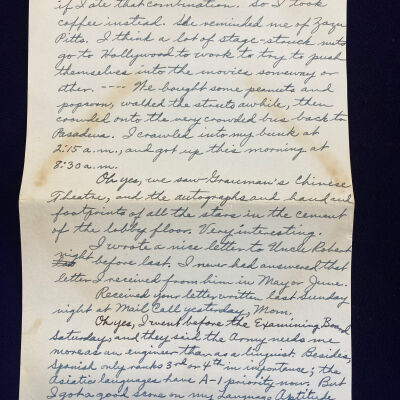 if I ate that combination. So I took
coffee instead. She reminded me of Zazu
Pitts. I think a lot of stage-struck nuts
go to Hollywood to work to try to push
themselves into the movies someway or
other. ---- We bought some peanuts and
popcorn, walked the streets awhile, then
crowded onto the very crowded bus back to
Pasadena. I crawled into my bunk at
2:15 a.m., and got up this morning at
8:30 a.m.
Oh yes, we saw Grauman's Chinese
Theatre, and the autographs and hand and
footprints of all the stars in the cement
of the lobby floor. Very interesting.
I wrote a nice letter to Uncle Robert
night before last. I never had answered that
letter I received from him in May or June.
Received your letter written last Sunday
night at Mail Call yesterday, Mom.
Oh yes, I went before the Examining Board
Saturday, and they said the Army needs me
more as an engineer than as a linguist. Besides,
Spanish only ranks 3rd or 4th in importance; the
Asiatic languages have A-1 priority now. But
I got a good score on my Language Aptitude